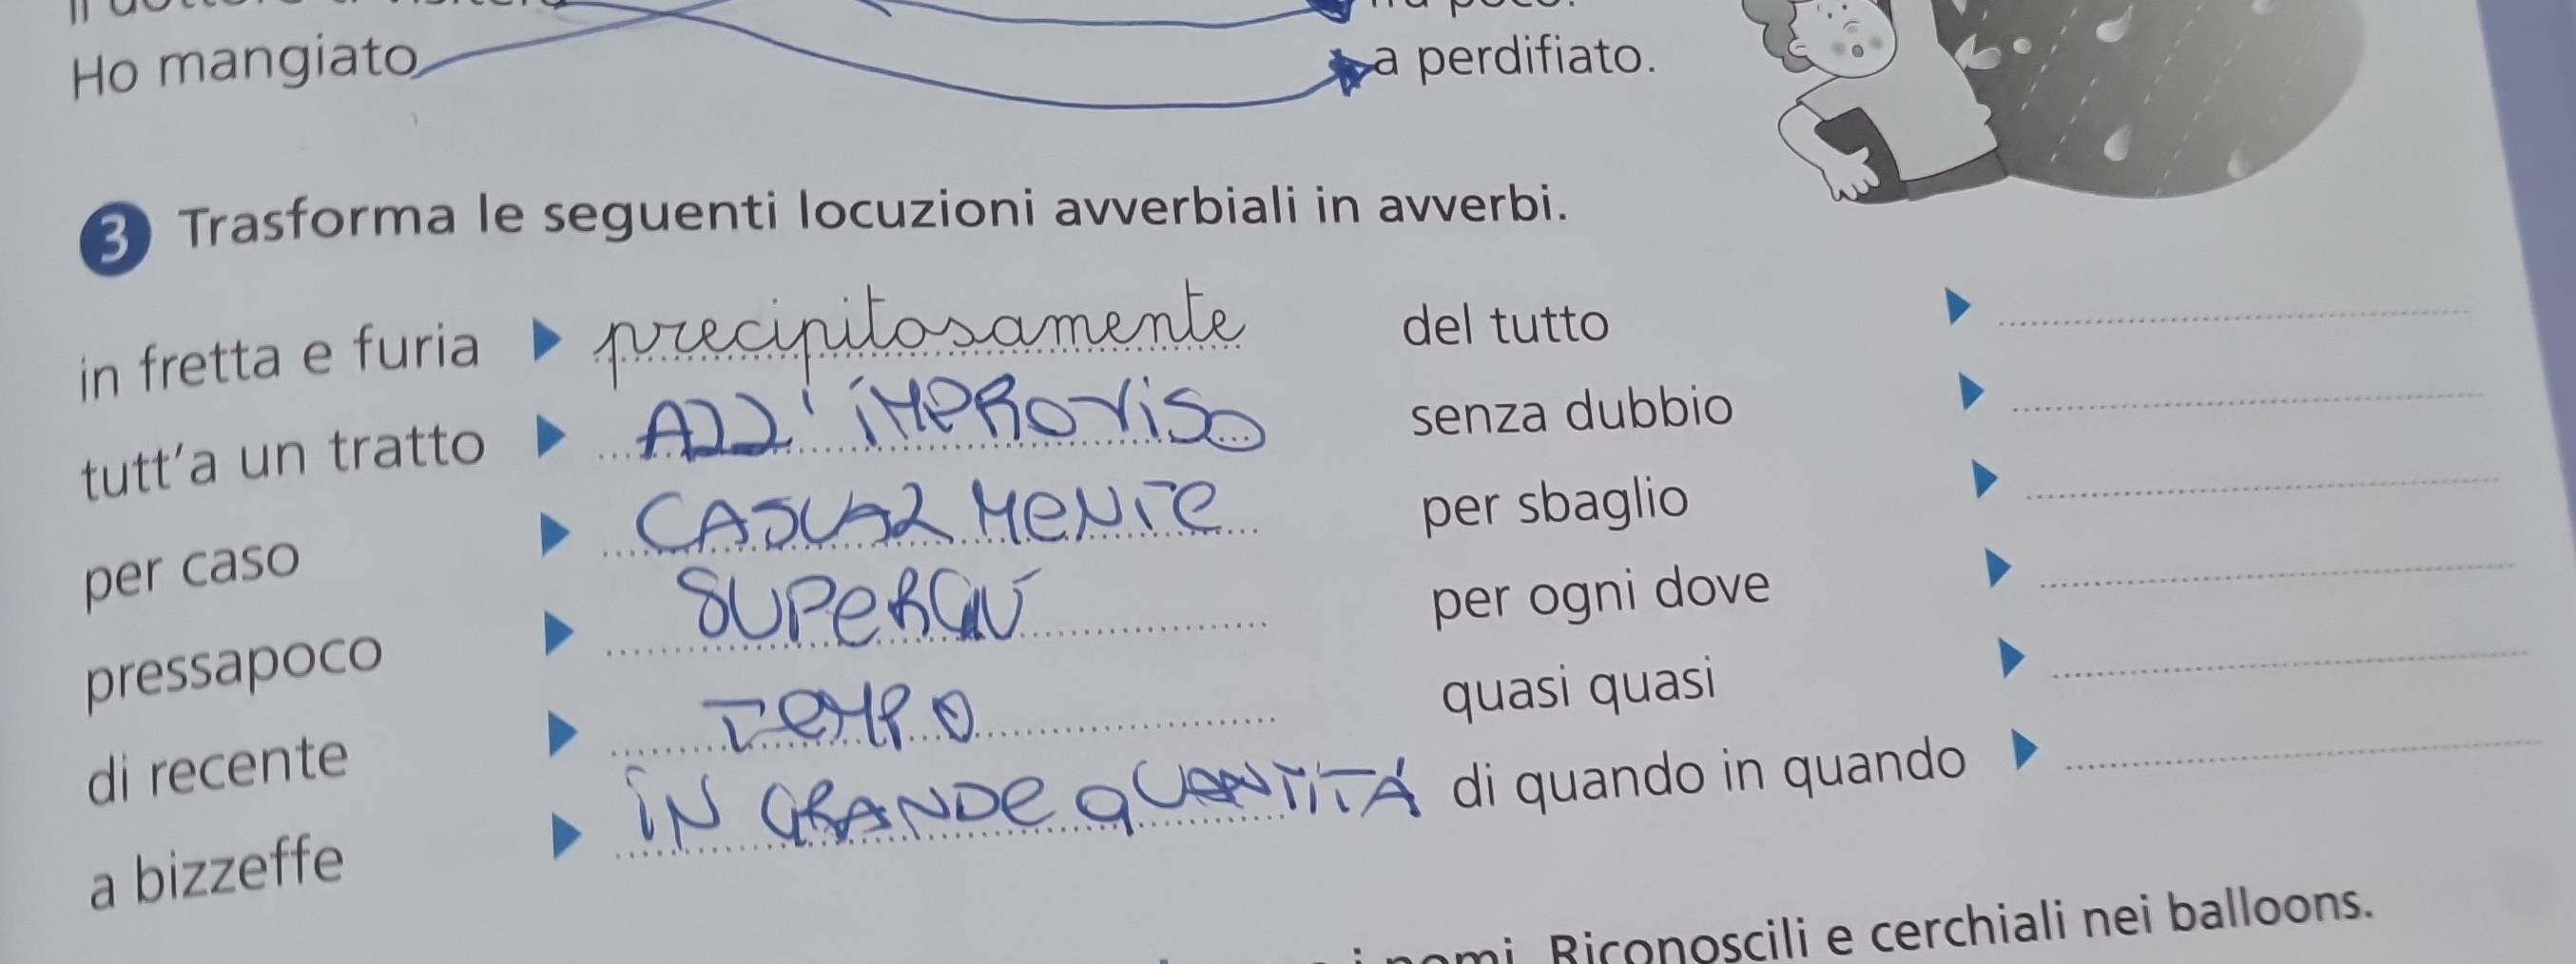 Ho mangiato
a perdifiato.
3 Trasforma le seguenti locuzioni avverbiali in avverbi.
in fretta e furia precipitosamente
tutt'a un tratto ALL'IMPROVISO
per caso CASUALMENTE
pressapoco
di recente TEMPO
a bizzeffe IN GRANDE QUANTITÁ
del tutto
senza dubbio
per sbaglio
per ogni dove
quasi quasi
di quando in quando
Riconoscili e cerchiali nei balloons.